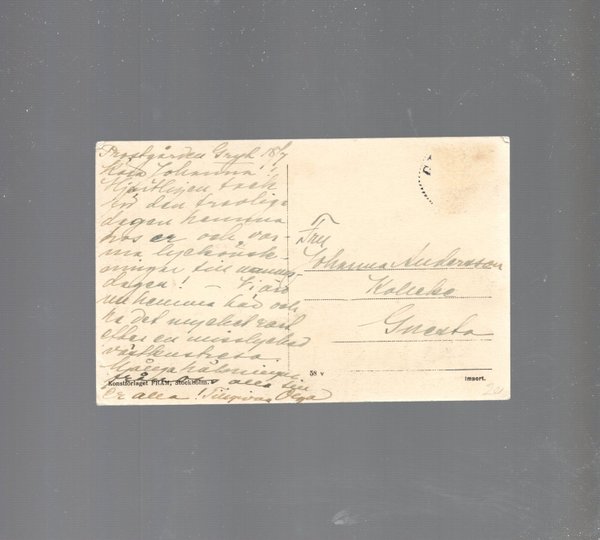 Prostgården Gryt 18/7
Kära Johanna!
Hjärtligen tack
för den trevliga
dagen hemma
hos er och var-
ma lyckönsk-
ningar till namns-
dagen! — Vi äro
nu hemma här och
ha det mycket rart
efter en misslyckad
västkustresa.
Många hälsningar
från oss alla till
er alla! Olga
Fru
Johanna Andersson
Gnesta
Konstförlaget FRAM, Stockholm.
58 v
Import.
20